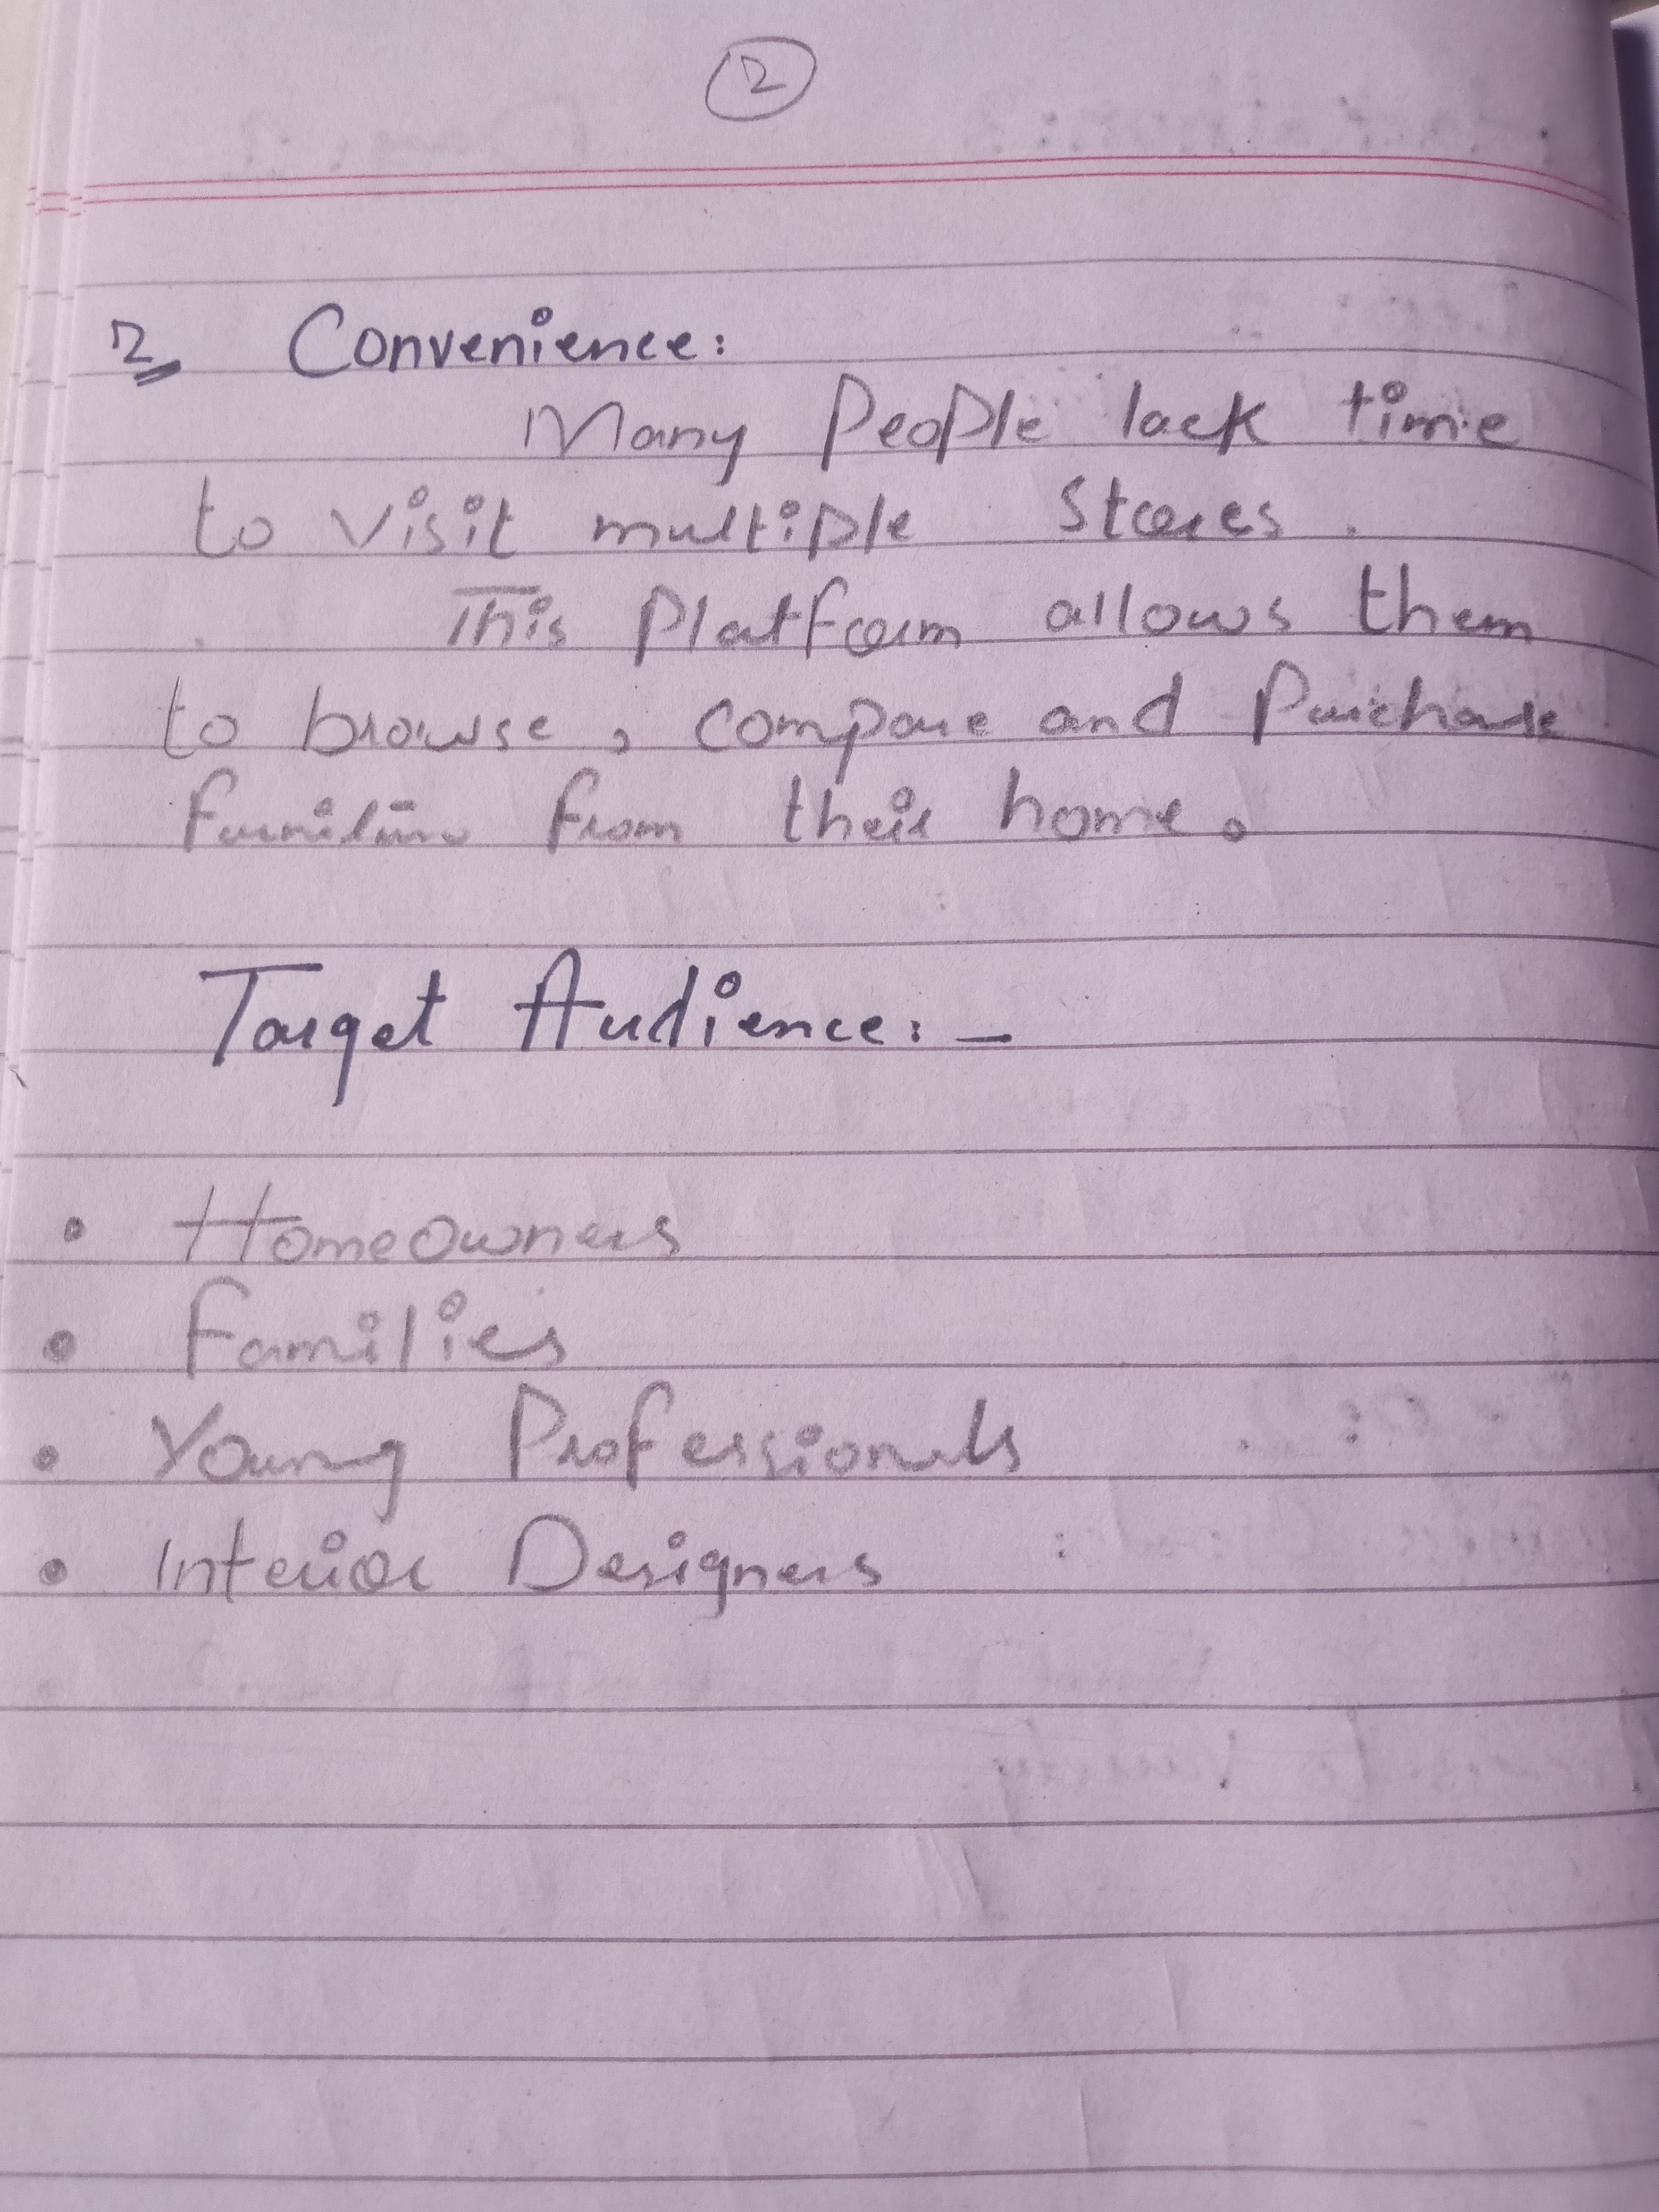 2
2 Convenience:
Many People lack time
to visit multiple Stores.
This Platform allows them
to browse, compare and Purchase
furniture from their home.
Target Audience:-
• Homeowners
• Families
• Young Professionals
• Interior Designers